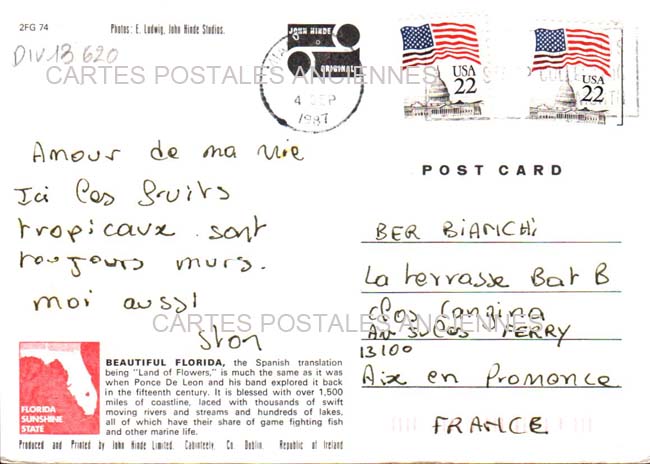 2FG 74
Photos: E. Ludwig, John Hinde Studios.
DIV 13 620
JOHN HINDE
ORIGINAL
4 SEP
1987
USA
22
USA
22
CARTES POSTALES ANCIENNES
Amour de ma vie
Ici les fruits
tropicaux sont
toujours murs.
moi aussi
POST CARD
BER BIANCHI
La terrasse Bat B
Clos
Av Jules FERRY
13100
Aix en Promonce
FRANCE
CARTES POSTALES ANCIENNES
FLORIDA
SUNSHINE
STATE
BEAUTIFUL FLORIDA, the Spanish translation
being "Land of Flowers," is much the same as it was
when Ponce De Leon and his band explored it back
in the fifteenth century. It is blessed with over 1,500
miles of coastline, laced with thousands of swift
moving rivers and streams and hundreds of lakes,
all of which have their share of game fighting fish
and other marine life.
Produced and Printed by John Hinde Limited, Cabinteely, Co. Dublin, Republic of Ireland